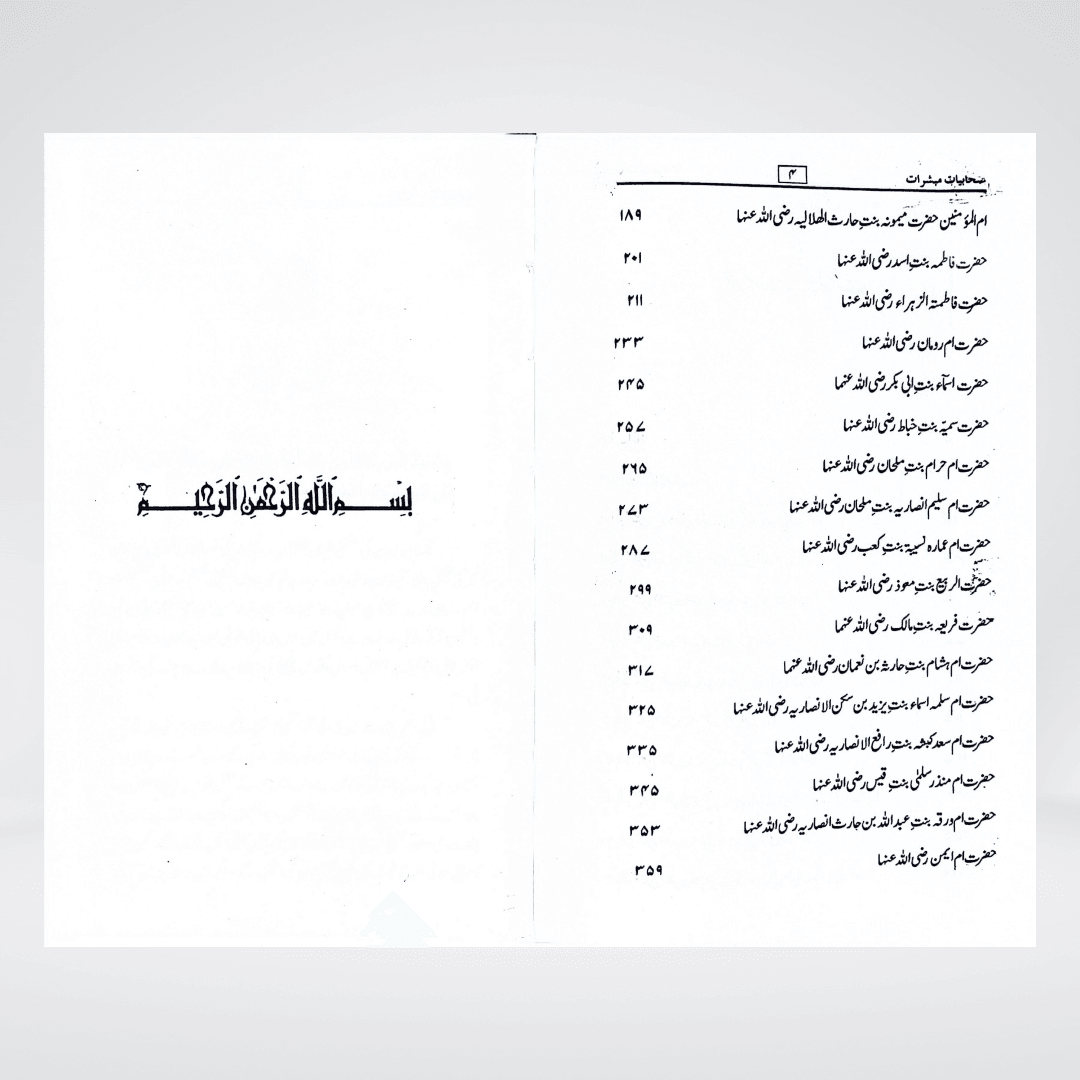 صحابیات مبشرات
۴
ام المؤمنین حضرت میمونہ بنتِ حارث الھلالیہ رضی اللہ عنہا ۱۸۹
حضرت فاطمہ بنتِ اسد رضی اللہ عنہا ۲۰۱
حضرت فاطمتہ الزہراء رضی اللہ عنہا ۲۱۱
حضرت ام رومان رضی اللہ عنہا ۲۳۳
حضرت اسمآء بنتِ ابی بکر رضی اللہ عنہما ۲۴۵
حضرت سمیّہ بنتِ خباط رضی اللہ عنہا ۲۵۷
حضرت ام حرام بنتِ ملحان رضی اللہ عنہا ۲۶۵
حضرت ام سلیم انصاریہ بنتِ ملحان رضی اللہ عنہا ۲۷۳
حضرت ام عمارہ نسیبۃ بنتِ کعب رضی اللہ عنہا ۲۸۷
حضرت الربیع بنتِ معوذ رضی اللہ عنہا ۲۹۹
حضرت فریعہ بنتِ مالک رضی اللہ عنہا ۳۰۹
حضرت ام ہشام بنتِ حارثہ بن نعمان رضی اللہ عنہما ۳۱۷
حضرت ام سلمہ اسماء بنتِ یزید بن سکن الانصاریہ رضی اللہ عنہا ۳۲۵
حضرت ام سعد کبشہ بنتِ رافع الانصاریہ رضی اللہ عنہا ۳۳۵
حضرت ام منذر سلمٰی بنتِ قیس رضی اللہ عنہا ۳۴۵
حضرت ام ورقہ بنتِ عبد اللہ بن حارث انصاریہ رضی اللہ عنہا ۳۵۳
حضرت ام ایمن رضی اللہ عنہا ۳۵۹
بِسْمِ اللَّهِ الرَّحْمَٰنِ الرَّحِيمِ